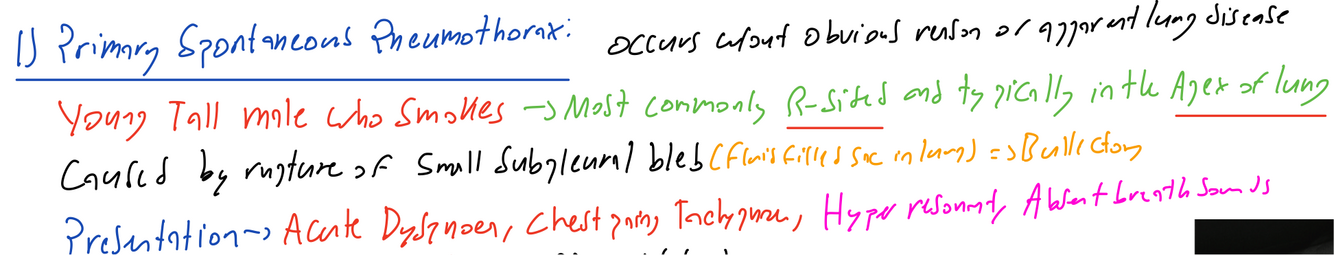 1) Primary Spontaneous Pneumothorax: occurs w/out obvious reason or apparent lung disease
Young Tall male who Smokes → Most commonly R-Sided and typically in the Apex of lung
Caused by rupture of Small Subpleural bleb (fluid filled sac in lung) => Bullectomy
Presentation → Acute Dyspnoea, Chest pain, Tachypnoea, Hyper resonant, Absent breath Sounds